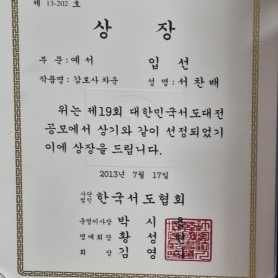 제 13-202 호
상 장
부 문: 예서 입 선
작품명: 감로사 차운 성 명: 서 찬 배
위는 제19회 대한민국서도대전
공모에서 상기와 같이 선정되었기
이에 상장을 드립니다.
2013년 7월 17일
사단법인 한국서도협회
운영이사장 박 시
명예회장 황 성
회 장 김 영